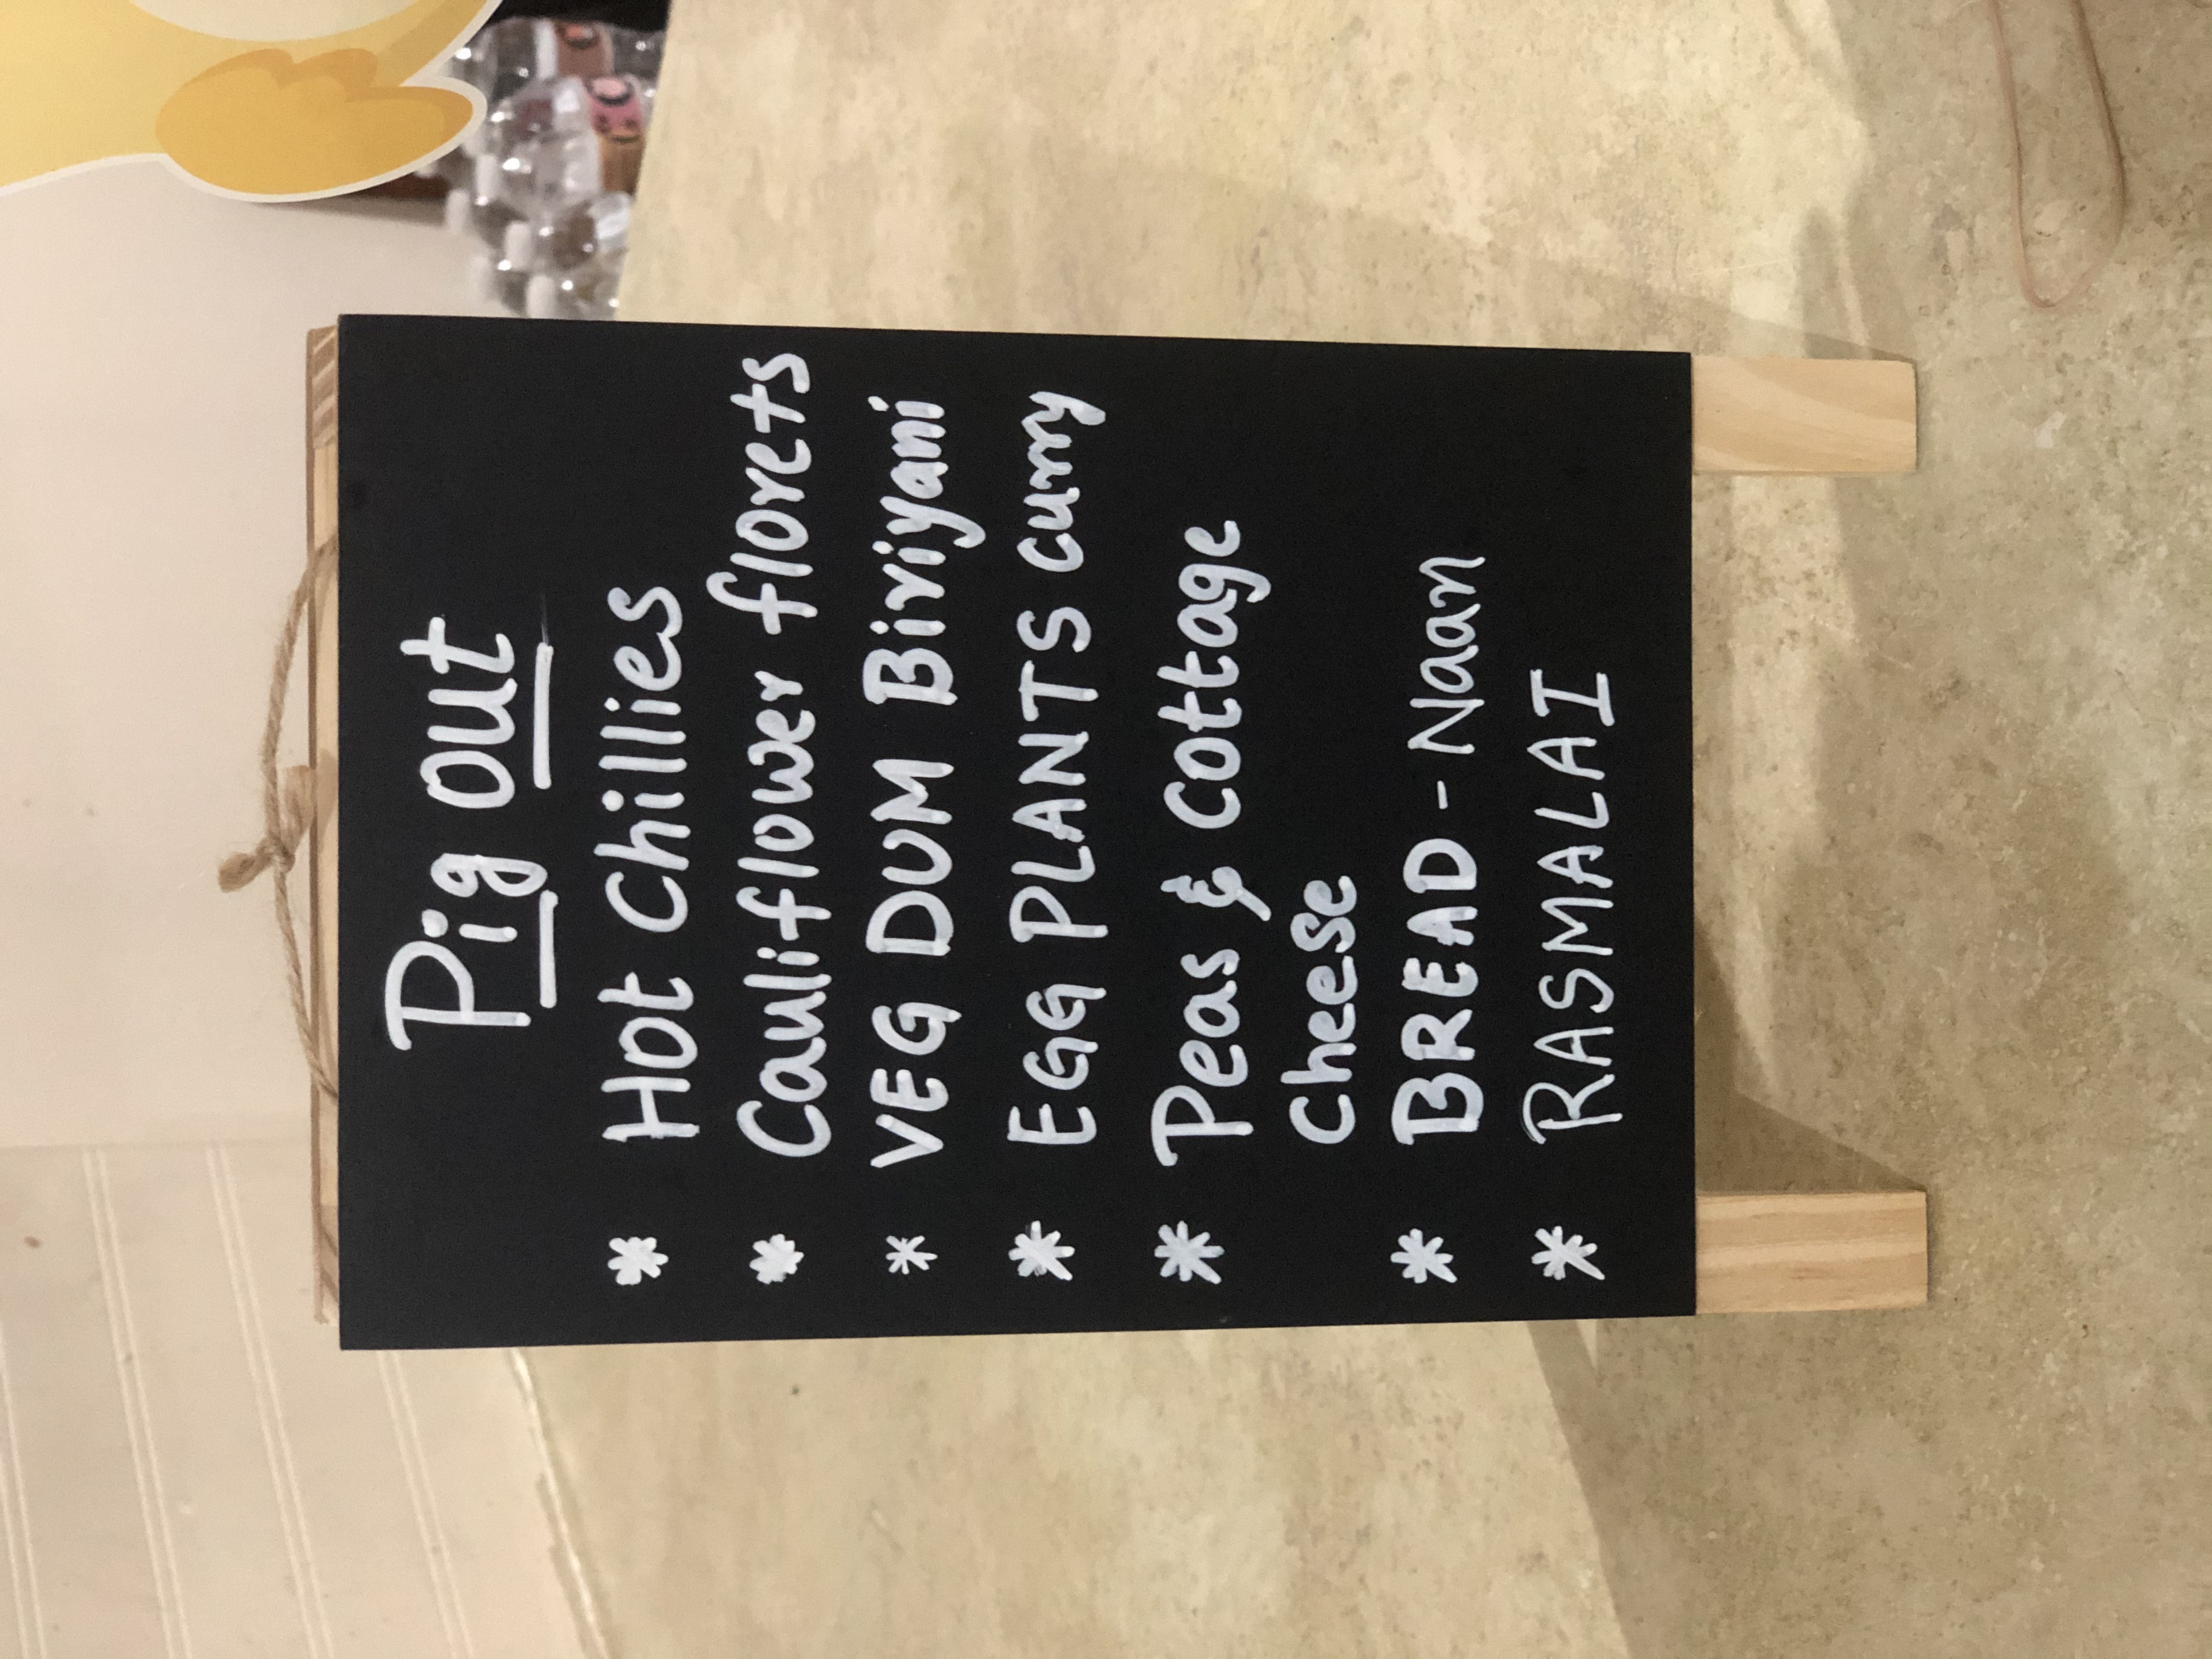 Pig out
* Hot Chillies
* Cauliflower florets
* VEG DUM Biriyani
* EGG PLANTS Curry
* Peas & Cottage
Cheese
* BREAD - Naan
* RASMALAI